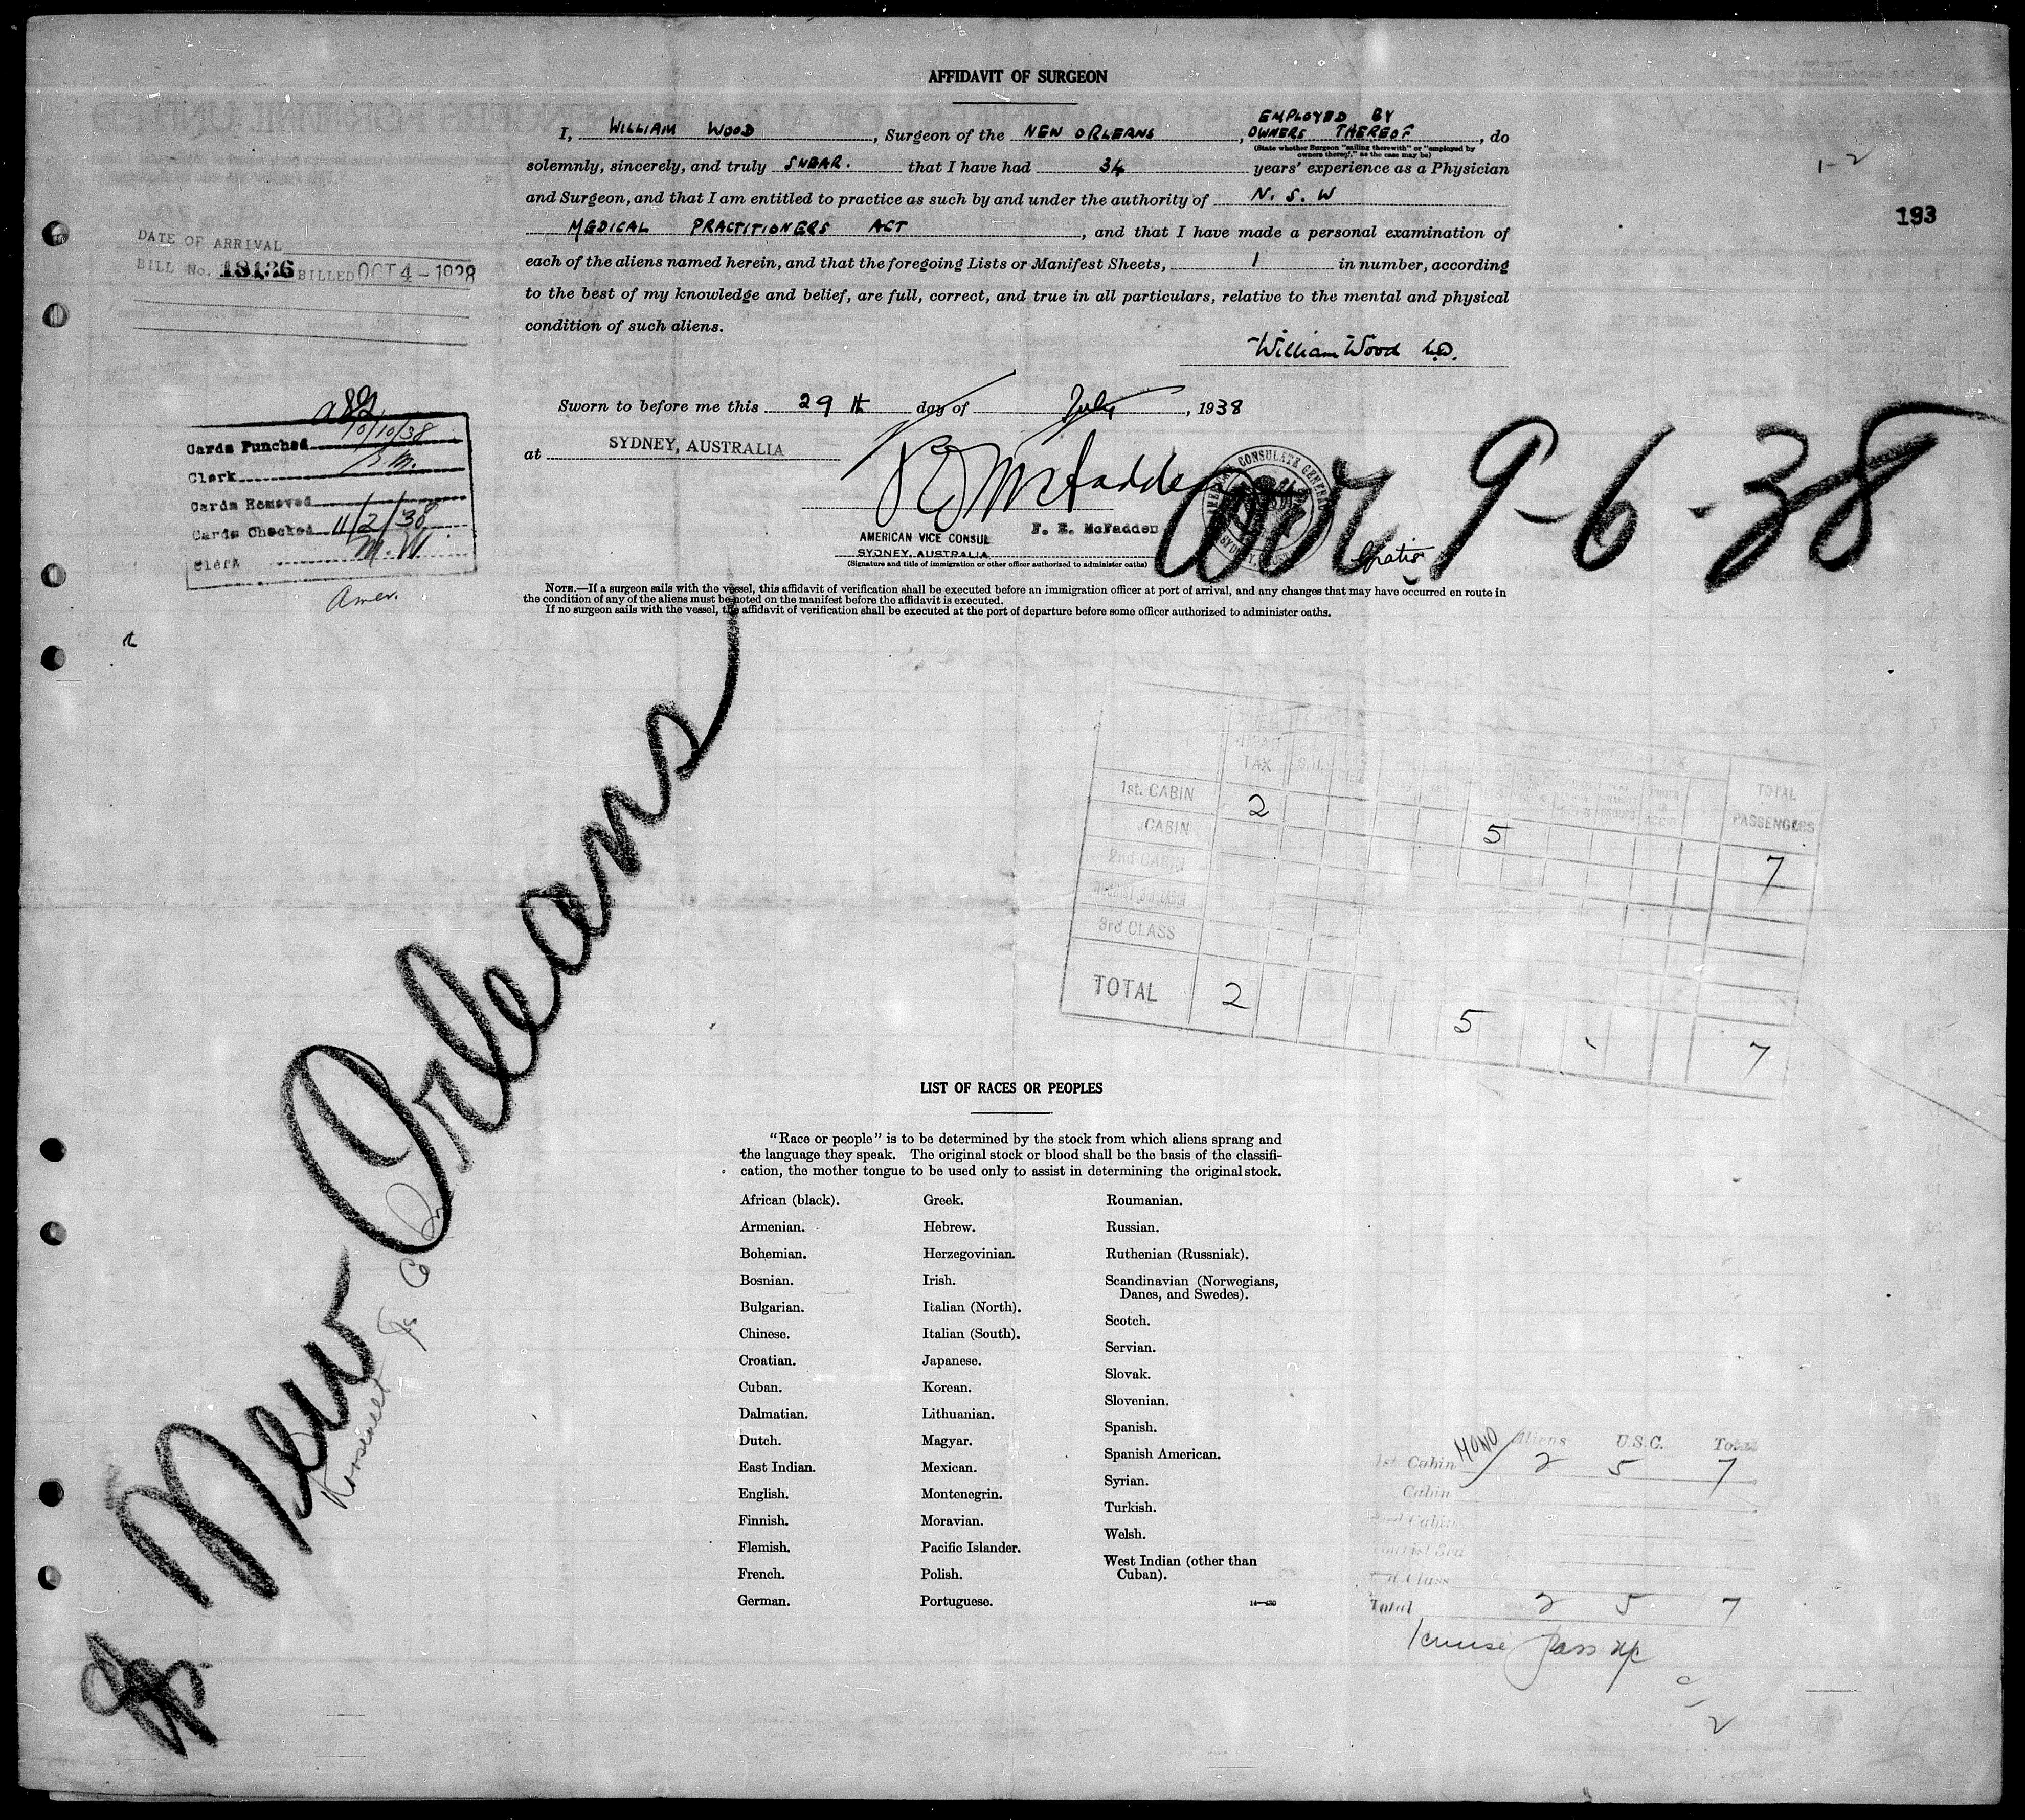 AFFIDAVIT OF SURGEON
I, WILLIAM WOOD, Surgeon of the NEW ORLEANS, EMPLOYED BY OWNERS THEREOF, do
(State whether Surgeon "sailing therewith" or "employed by owners thereof," as the case may be)
solemnly, sincerely, and truly SWEAR. that I have had 34 years' experience as a Physician
and Surgeon, and that I am entitled to practice as such by and under the authority of N. S. W
MEDICAL PRACTITIONERS ACT, and that I have made a personal examination of
each of the aliens named herein, and that the foregoing Lists or Manifest Sheets, 1 in number, according
to the best of my knowledge and belief, are full, correct, and true in all particulars, relative to the mental and physical
condition of such aliens.
1-2
193
DATE OF ARRIVAL
BILL No. 19136 BILLED OCT 4-1938
William Wood
Sworn to before me this 29th day of July, 1938
at SYDNEY, AUSTRALIA
Cards Punched 10/10/38
Clerk
Cards Removed
Cards Checked 11/2/38
Clerk M.W.
Amer.
AMERICAN CONSULATE GENERAL
9-6-38
F. E. McFadden
AMERICAN VICE CONSUL
SYDNEY, AUSTRALIA
(Signature and title of immigration or other officer authorized to administer oaths)
NOTE.—If a surgeon sails with the vessel, this affidavit of verification shall be executed before an immigration officer at port of arrival, and any changes that may have occurred en route in
the condition of any of the aliens must be noted on the manifest before the affidavit is executed.
If no surgeon sails with the vessel, the affidavit of verification shall be executed at the port of departure before some officer authorized to administer oaths.
New Orleans
Roosevelt
TAX
TOTAL PASSENGERS
1st. CABIN 2 5 7
CABIN
2nd CABIN
3rd CLASS
TOTAL 2 5 7
LIST OF RACES OR PEOPLES
"Race or people" is to be determined by the stock from which aliens sprang and
the language they speak. The original stock or blood shall be the basis of the classifi-
cation, the mother tongue to be used only to assist in determining the original stock.
African (black).
Armenian.
Bohemian.
Bosnian.
Bulgarian.
Chinese.
Croatian.
Cuban.
Dalmatian.
Dutch.
East Indian.
English.
Finnish.
Flemish.
French.
German.
Greek.
Hebrew.
Herzegovinian.
Irish.
Italian (North).
Italian (South).
Japanese.
Korean.
Lithuanian.
Magyar.
Mexican.
Montenegrin.
Moravian.
Pacific Islander.
Polish.
Portuguese.
Roumanian.
Russian.
Ruthenian (Russniak).
Scandinavian (Norwegians,
Danes, and Swedes).
Scotch.
Servian.
Slovak.
Slovenian.
Spanish.
Spanish American.
Syrian.
Turkish.
Welsh.
West Indian (other than
Cuban).
Aliens U.S.C. Total
1st Cabin MONO 2 5 7
Cabin
2nd Cabin
Tourist 3rd
3rd Class
Total 2 5 7